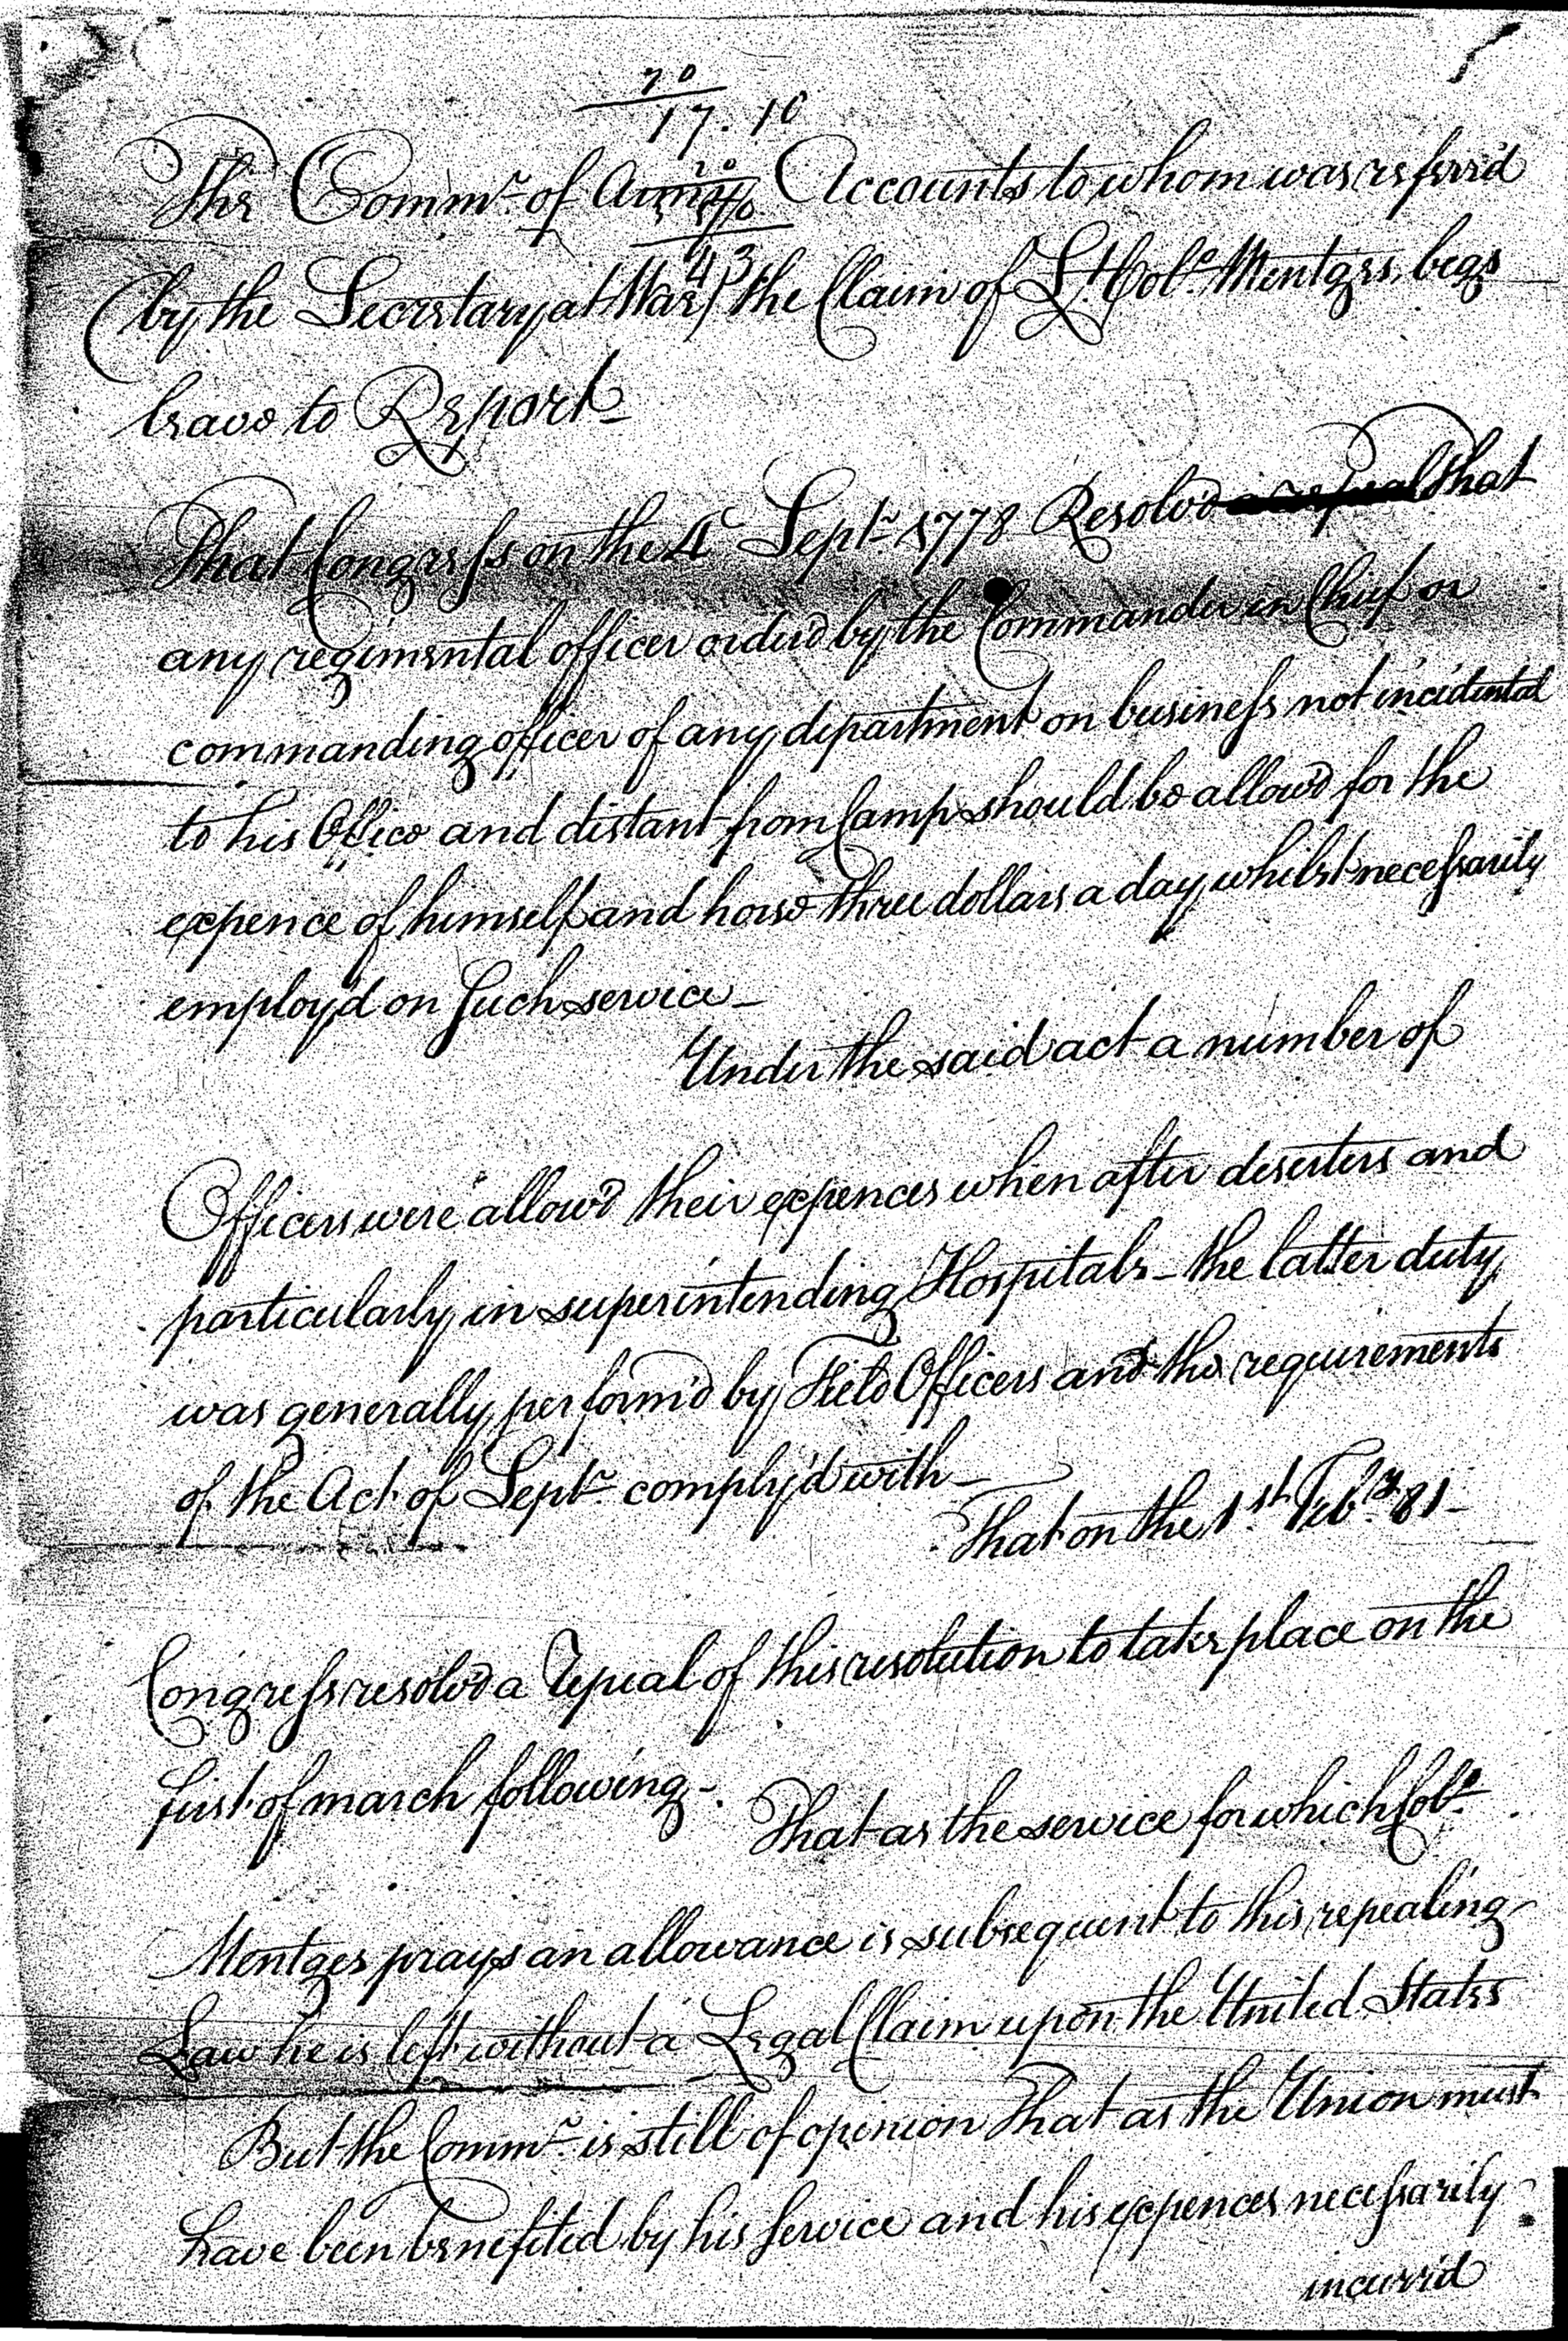 70
17. 10
The Commr. of Army Accounts to whom was referrd
(by the Secretary at War) the Claim of Lt. Colo. Mentges, begs
43
leave to Report—
That Congress on the 4 Septr. 1778 Resolvd a repeal that
any regimental officer orderd by the Commander in Chief or
commanding officer of any department on business not incidental
to his Office and distant from Camp should be allowd for the
expence of himself and horse three dollars a day whilst necessarily
employd on Such service—
Under the said act a number of
Officers were allowd their expences when after deserters and
particularly in superintending Hospitals— the latter duty
was generally performd by Field Officers and the requirements
of the Act of Septr. complyd with—
That on the 1st. Feby. 81—
Congress resolvd a repeal of this resolution to take place on the
first of march following—.
That as the service for which Colo.
Mentges prays an allowance is subsequent to this repealing
Law he is left without a Legal Claim upon the United States
But the Commr. is still of opinion that as the Union must
have been benefited by his Service and his expences necessarily
incurrd